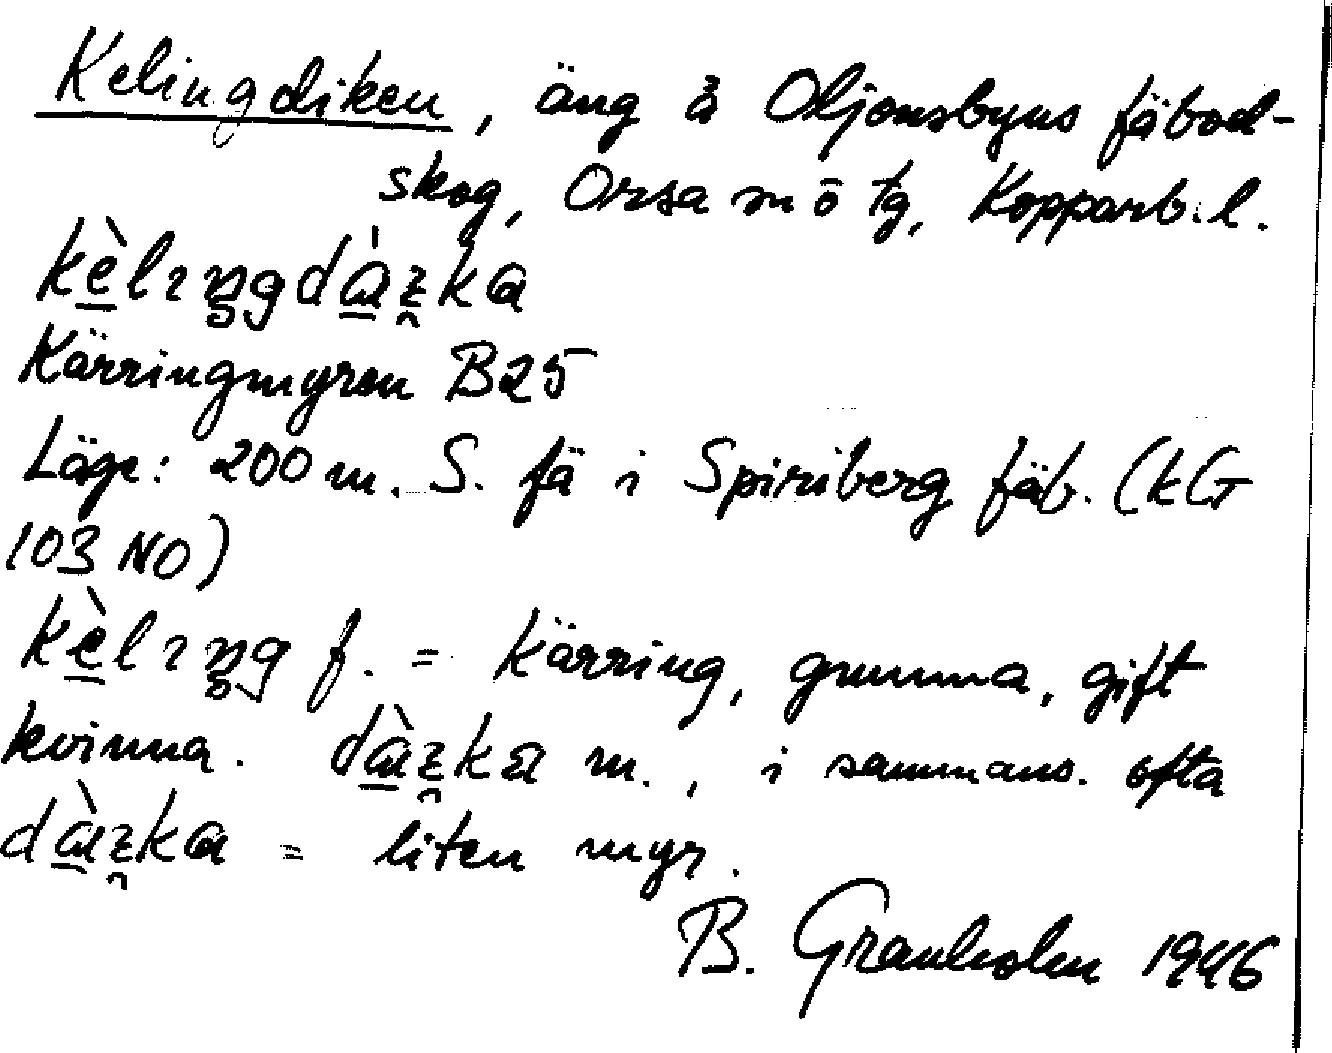 Kelingdiken, äng å Oljonsbyns fäbod-
skog, Orsa sn ö tg, Kopparb. l.
kèlıŋgdàɪka
Kärringmyren B25
Läge: 200 m. S. fä i Spiriberg fäb. (kG
103 NO)
kèlıŋg f. = kärring, gumma, gift
kvinna. dàɪka m., i sammans. ofta
dàɪka = liten myr.
B. Granholm 1946